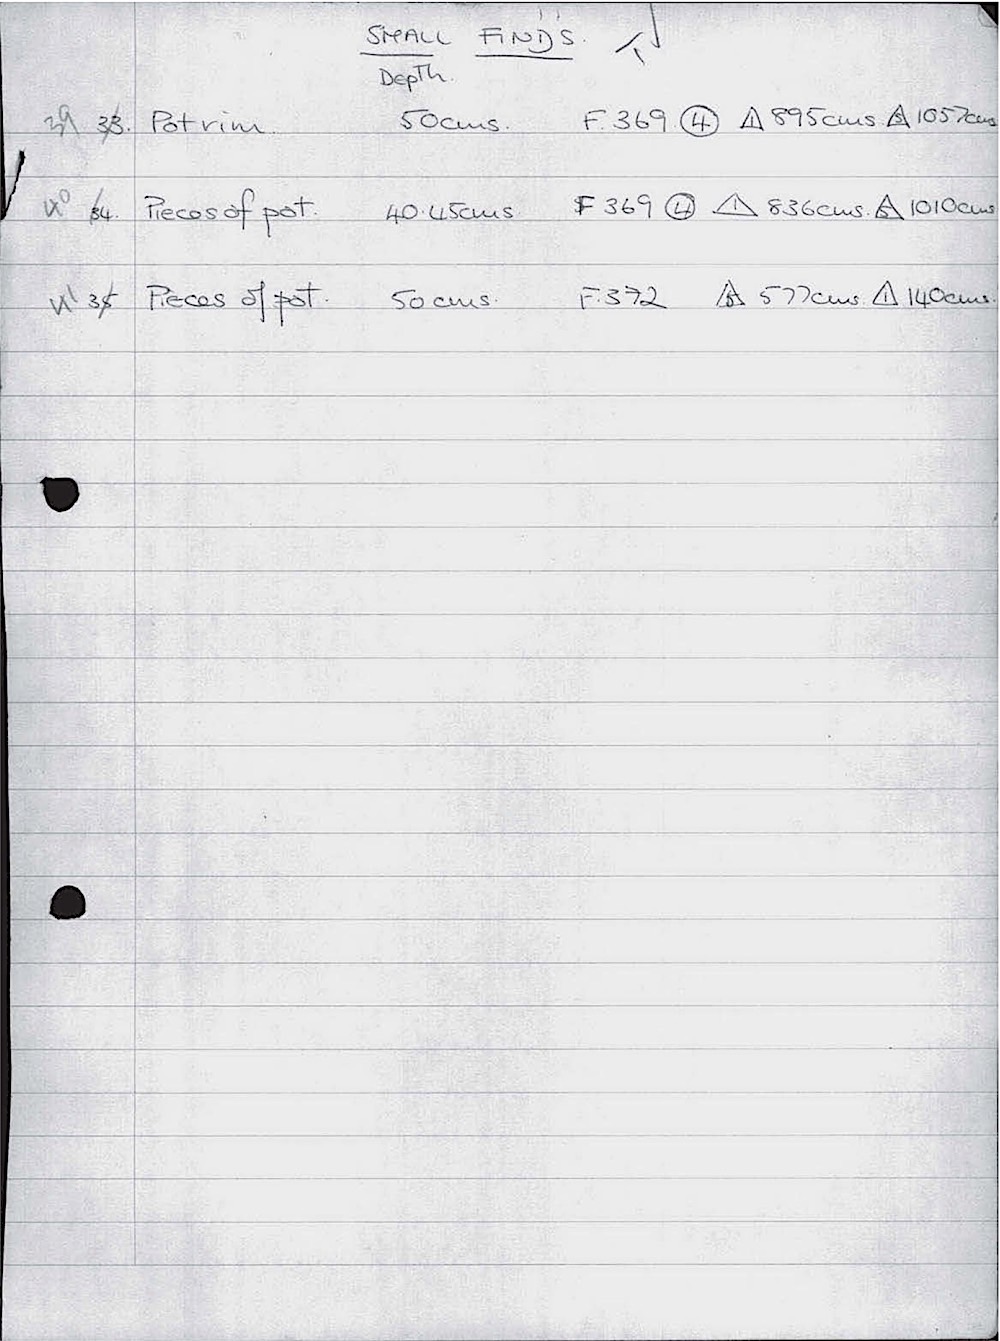 SMALL FINDS.
Depth.
39 33. Pot rim. 50cms. F.369 ④ △1 895cms △5 1057cms
40 34. Pieces of pot. 40.45cms F 369 ④ △1 836cms. △5 1010cms
41 35 Pieces of pot. 50cms. F.372 △5 577cms. △1 140cms.